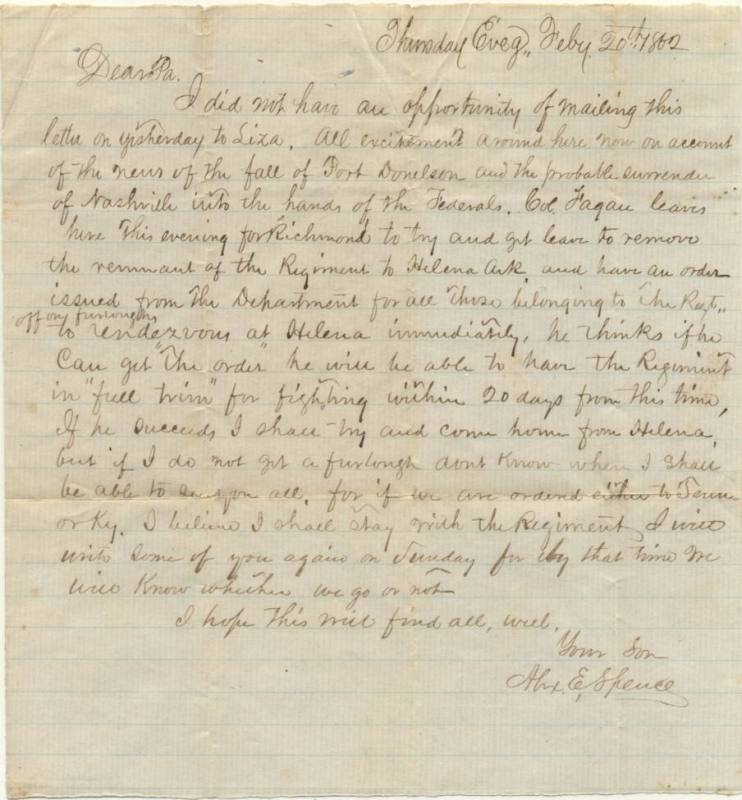 Thursday Eveg., Feby. 20th 1862
Dear Pa.
I did not have an opportunity of mailing this
letter on yisterday to Liza. All excitement around here now on account
of the news of the fall of Fort Donelson and the probable surrender
of Nashville into the hands of the Federals. Col. Fagan leaves
here this evening for Richmond to try and get leave to remove
the remnant of the Regiment to Helena Ark and have an order
issued from the Department for all those belonging to the Regt.,
off on furloughs
to rendezvous at Helena immediately, he thinks if he
can get "the order" he will be able to have the Regiment
in "full trim" for fighting within 20 days from this time,
If he succeeds I shall try and come home from Helena,
but if I do not get a furlough dont know when I shall
be able to see you all. for if we are ordered either to Tenn
or Ky. I believe I shall stay with the Regiment, I will
write some of you again on Sunday for by that time we
will know whether we go or not
I hope this will find all, well.
Your Son
Alex. E. Spence